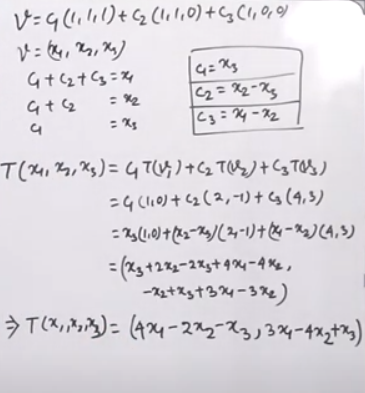 V=C₁(1,1,1)+C₂(1,1,0)+C₃(1,0,0)
V=(x₁, x₂, x₃)
C₁+C₂+C₃=x₁
C₁+C₂ =x₂
C₁ =x₃
C₁=x₃
C₂=x₂-x₃
C₃=x₁-x₂
T(x₁,x₂,x₃)=C₁T(V₁)+C₂T(V₂)+C₃T(V₃)
=C₁(1,0)+C₂(2,-1)+C₃(4,3)
=x₃(1,0)+(x₂-x₃)(2,-1)+(x₁-x₂)(4,3)
=(x₃+2x₂-2x₃+4x₁-4x₂,
-x₂+x₃+3x₁-3x₂)
⇒T(x₁,x₂,x₃)=(4x₁-2x₂-x₃,3x₁-4x₂+x₃)